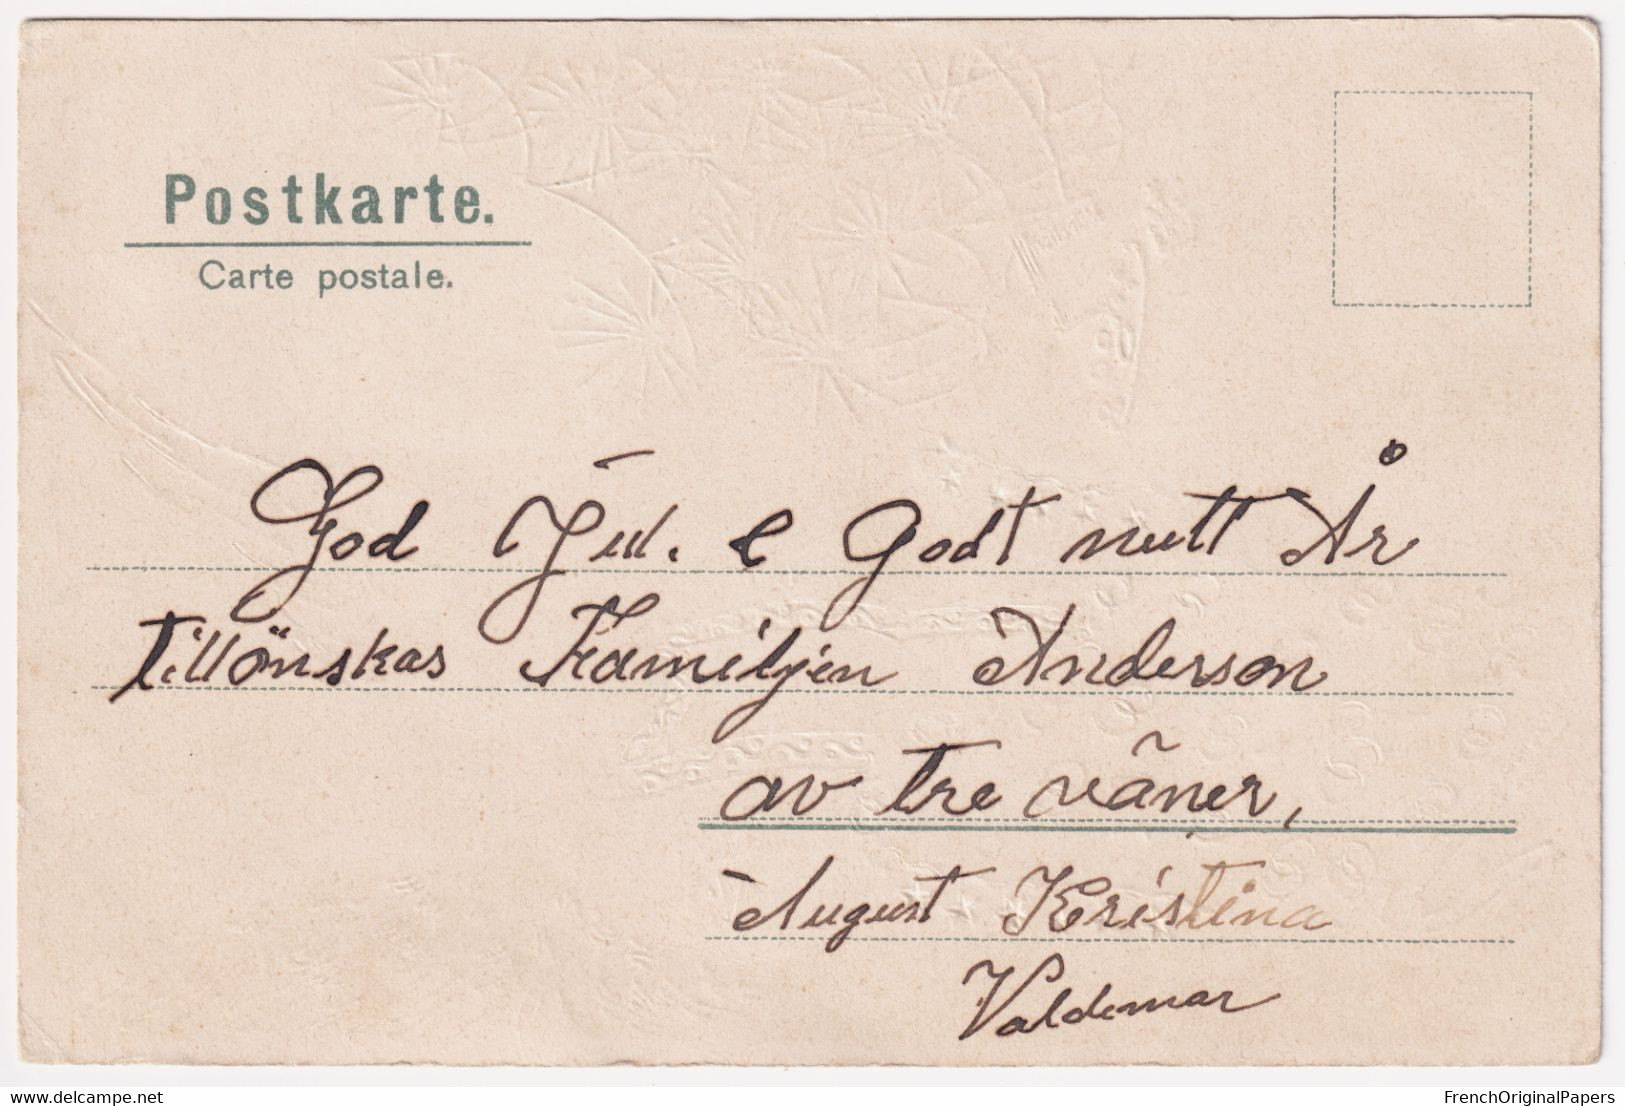 Postkarte.
Carte postale.
God Jul. e Godt nutt År
tillönskas Familjen Anderson
av tre väner,
August Kristina
Valdemar
www.delcampe.net
FrenchOriginalPapers